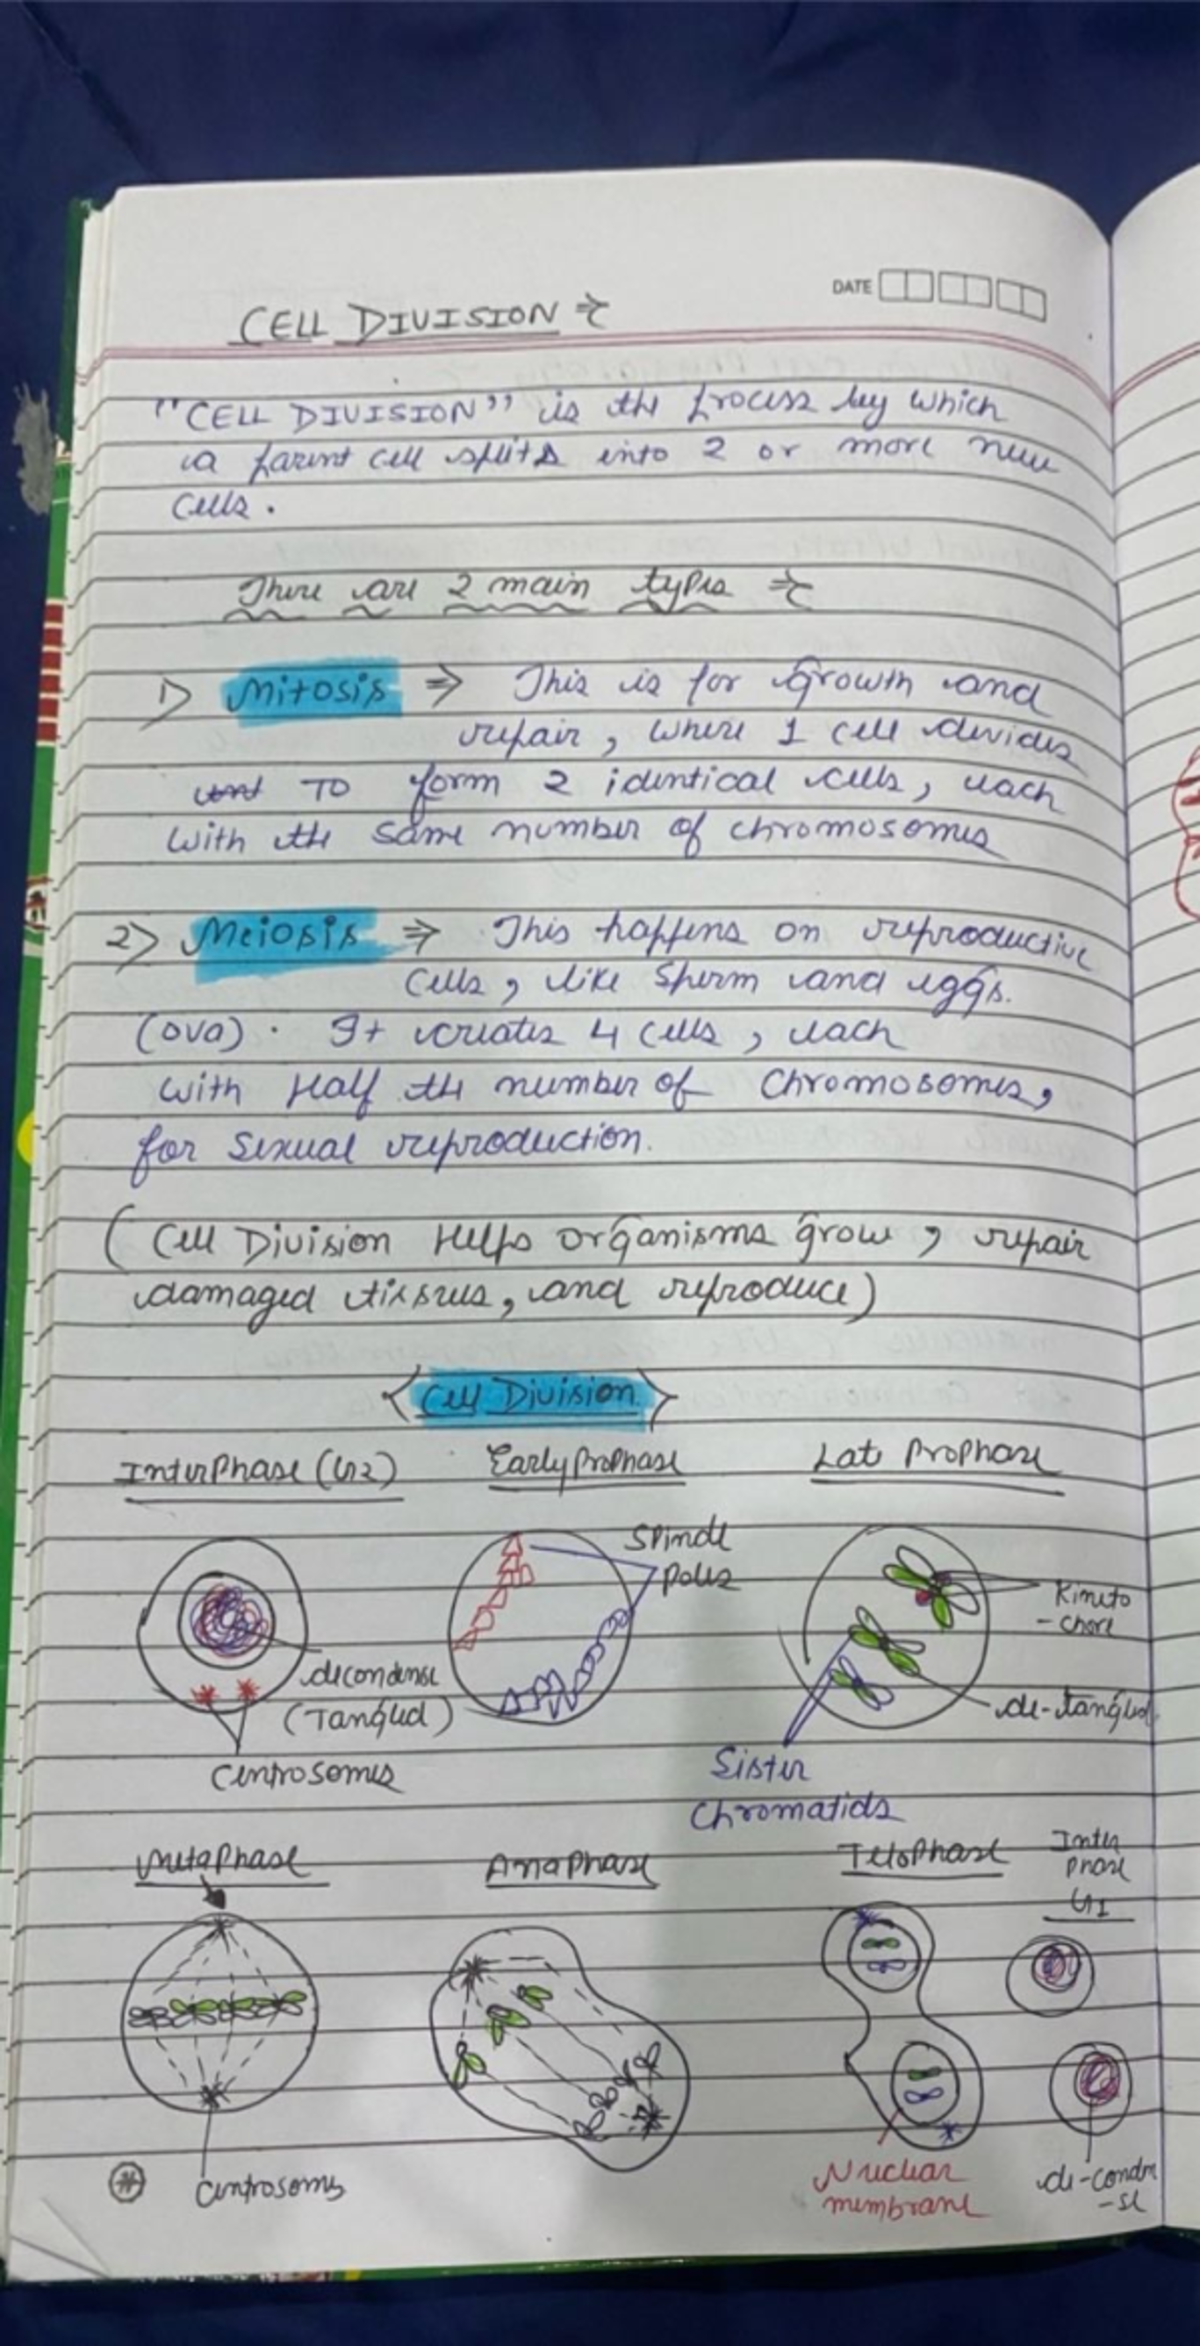 DATE
CELL DIVISION
"CELL DIVISION" is the process by which
a parent cell splits into 2 or more new
cells.
There are 2 main types
1) Mitosis ⇒ This is for growth and
repair, where 1 cell devides
TO form 2 identical cells, each
with the same number of chromosomes
2) Meiosis ⇒ This happens on reproductive
cells, like sperm and eggs.
(ova). It creates 4 cells, each
with Half the number of Chromosomes,
for Sexual reproduction.
(Cell Division Helps organisms grow, repair
damaged tissues, and reproduce)
Cell Division
InterPhase (G2) Early Prophase Late Prophase
Spindle
Poles
Kineto
-chore
decondense
(Tangled)
de-tangled
Centrosomes
Sister
Chromatids
MetaPhase AnaPhase TeloPhase Inter
phase
G1
Centrosomes
Nuclear
membrane
de-conden
-se